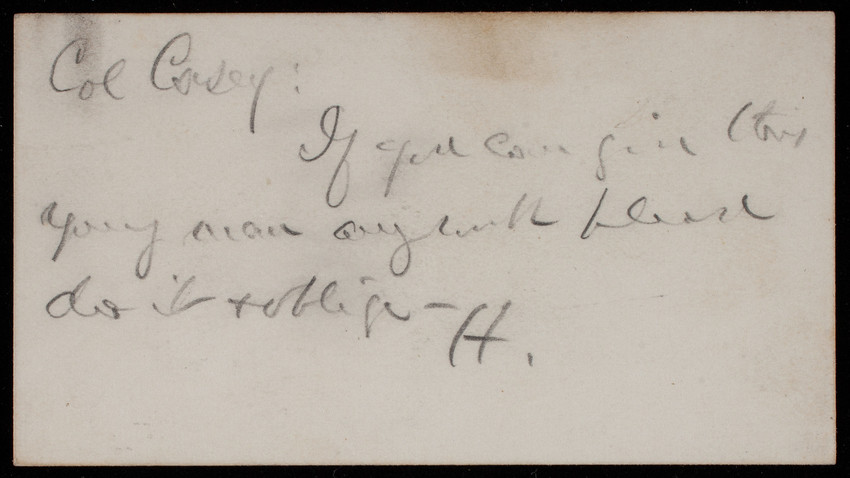 Col Casey:
If you can give this
young man any work please
do it & oblige —
H.